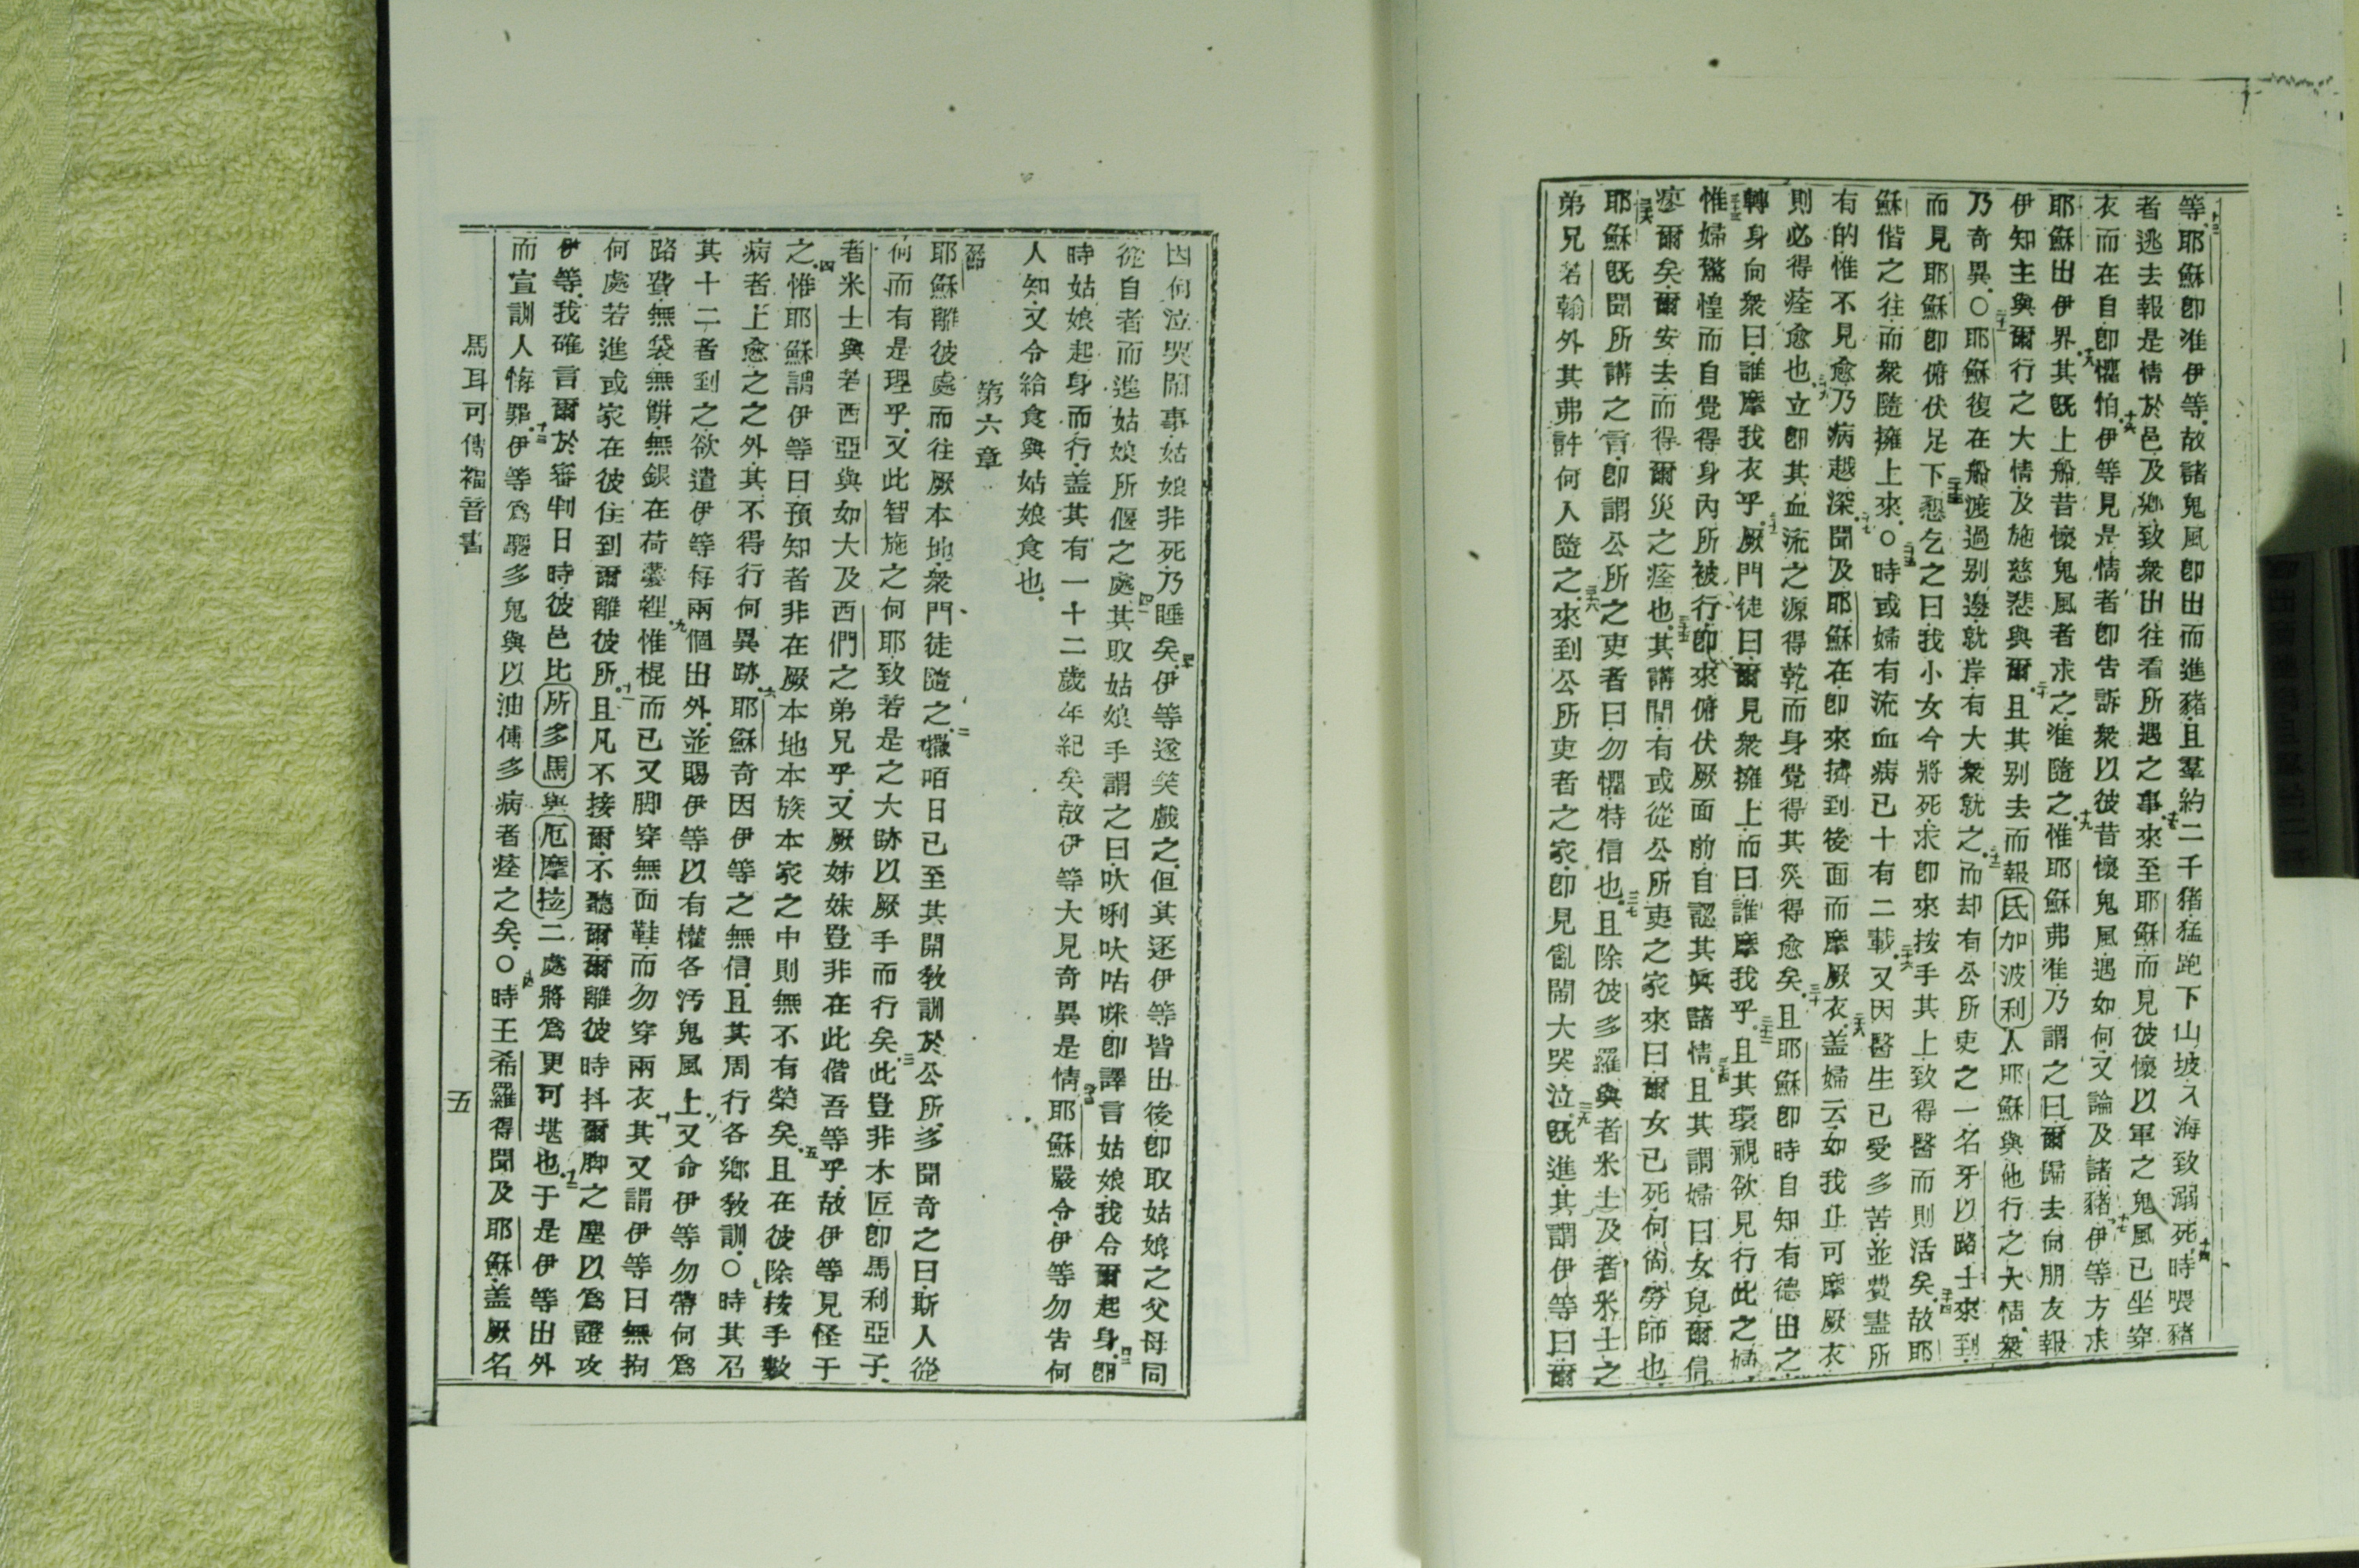 等耶穌卽准伊等故諸鬼風卽出而進豬且羣約二千猪猛跑下山坡入海致溺死時喂豬
者逃去報是情於邑及鄉致衆出往看所遇之事來至耶穌而見彼懷以軍之鬼風已坐穿
衣而在自卽懼怕伊等見是情者卽告訴衆以彼昔懷鬼風遇如何又論及諸豬伊等方求
耶穌出伊界其旣上船昔懷鬼風者求之准隨之惟耶穌弗准乃謂之曰爾歸去向朋友報
伊知主與爾行之大情及施慈悲與爾且其别去而報氏加波利人耶穌與他行之大情衆
乃奇異○耶穌復在船渡過别邊就岸有大衆就之而却有公所吏之一名牙以路士來到
而見耶穌卽俯伏足下懇乞之曰我小女今將死求卽來按手其上致得醫而則活矣故耶
穌偕之往而衆隨擁上來○時或婦有流血病已十有二載又因醫生已受多苦並費盡所
有的惟不見愈乃病越深聞及耶穌在卽來擠到後面而摩厥衣蓋婦云如我止可摩厥衣
則必得痊愈也立卽其血流之源得乾而身覺得其災得愈矣且耶穌卽時自知有德出之
轉身向衆曰誰摩我衣乎厥門徒曰爾見衆擁上而曰誰摩我乎且其環視欲見行此之婦
惟婦驚惶而自覺得身內所被行卽來俯伏厥面前自認其眞諸情且其謂婦曰女兒爾信
瘳爾矣爾安去而得爾災之痊也其講間有或從公所吏之家來曰爾女已死何尚勞師也
耶穌旣聞所講之言卽謂公所之吏者曰勿懼特信也且除彼多羅與者米士及者米士之
弟兄若翰外其弗許何人隨之來到公所吏者之家卽見亂鬧大哭泣旣進其謂伊等曰爾
因何泣哭鬧事姑娘非死乃睡矣伊等遂笑戲之但其逐伊等皆出後卽取姑娘之父母同
從自者而進姑娘所偃之處其取姑娘手謂之曰吠唎吠咕咪卽譯言姑娘我令爾起身卽
時姑娘起身而行蓋其有一十二歲年紀矣故伊等大見奇異是情耶穌嚴令伊等勿告何
人知又令給食與姑娘食也
第六章
耶穌離彼處而往厥本地衆門徒隨之㘔咟日已至其開敎訓於公所多聞奇之曰斯人從
何而有是理乎又此智施之何耶致若是之大跡以厥手而行矣此豈非木匠卽馬利亞子
者米士與若西亞與如大及西們之弟兄乎又厥姊妹豈非在此偕吾等乎故伊等見怪于
之惟耶穌謂伊等曰預知者非在厥本地本族本家之中則無不有榮矣且在彼除按手數
病者上愈之之外其不得行何異跡耶穌奇因伊等之無信且其周行各鄉敎訓○時其召
其十二者到之欲遣伊等每兩個出外並賜伊等以有權各汚鬼風上又命伊等勿帶何爲
路費無袋無餅無銀在荷囊裡惟棍而已又脚穿無面鞋而勿穿兩衣其又謂伊等曰無拘
何處若進或家在彼住到爾離彼所且凡不接爾不聽爾爾離彼時抖爾脚之塵以爲證攻
伊等我確言爾於審判日時彼邑比所多馬與厄摩拉二處將爲更可堪也于是伊等出外
而宣訓人悔罪伊等爲驅多鬼與以油傅多病者痊之矣○時王希羅得聞及耶穌蓋厥名
馬耳可傳福音書 五